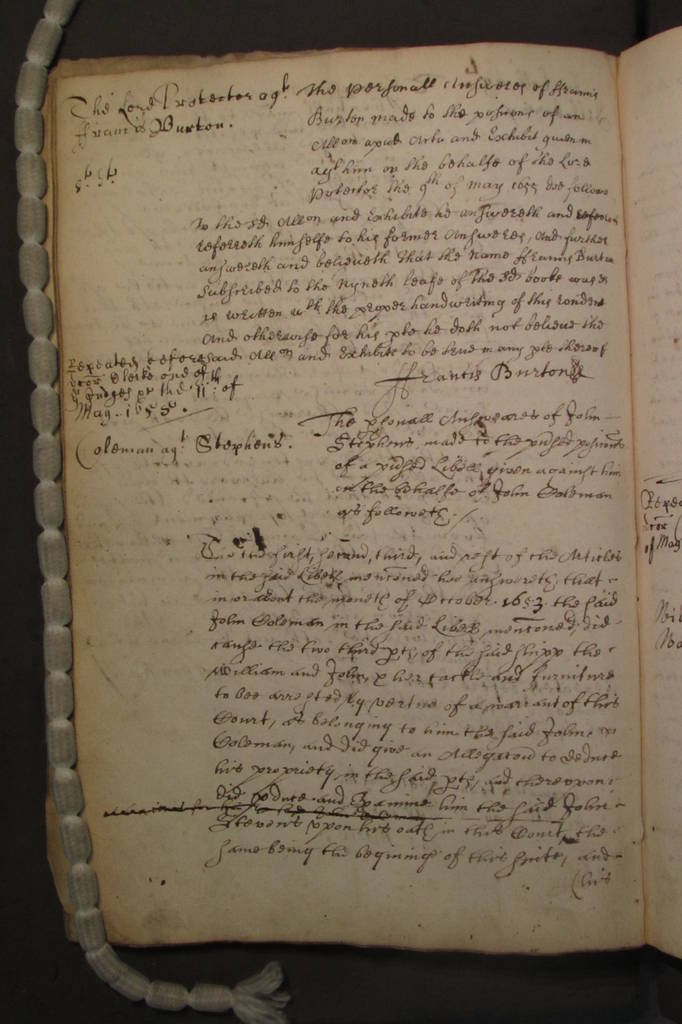 The Lord Protector agt.
Francis Burton.
The personall Answeres of Francis
Burton made to the posicons of an
Allon apud Acta and Exhibit given in
agt him on the behalfe of the Lord
Protector the 9th of May 1655 doe follow
To the sd Allon and Exhibite he answereth and
referreth himselfe to his former Answeres, And further
answereth and believeth that the name Francis Burton
subscribed to the nyneth leafe of the sd booke was &
is written wth the proper handwriting of this rondent
And otherwise for his pte he doth not believe the
aforesaid Allon and Exhibite to be true in any pte thereof
Francis Burton
Repeated before
Clerke one of the
Judges the 11th of
May. 1655.
Coleman agt Stephens.
The psonall Answeares of John
Stephens made to the posicons
of a Libell given against him
on the behalfe of John Coleman
as followeth. /
To the first, second, third, and rest of the Articles
in the said Libell mencioned hee answereth, that
in or about the moneth of October. 1653 the said
John Coleman in the said Libell mencioned, did
cause the two third pts, of the said shipp the
William and John, & her tackle and furniture
to bee arrested by vertue of a warrant of this
Court, as belonging to him the said John
Coleman, and did give an Allegation to deduce
his propriety in the said pts, and thereupon
did produce and Examine him the said John
Stevens upon his oath in this Court, the
same being the beginning of this suite, and
(his